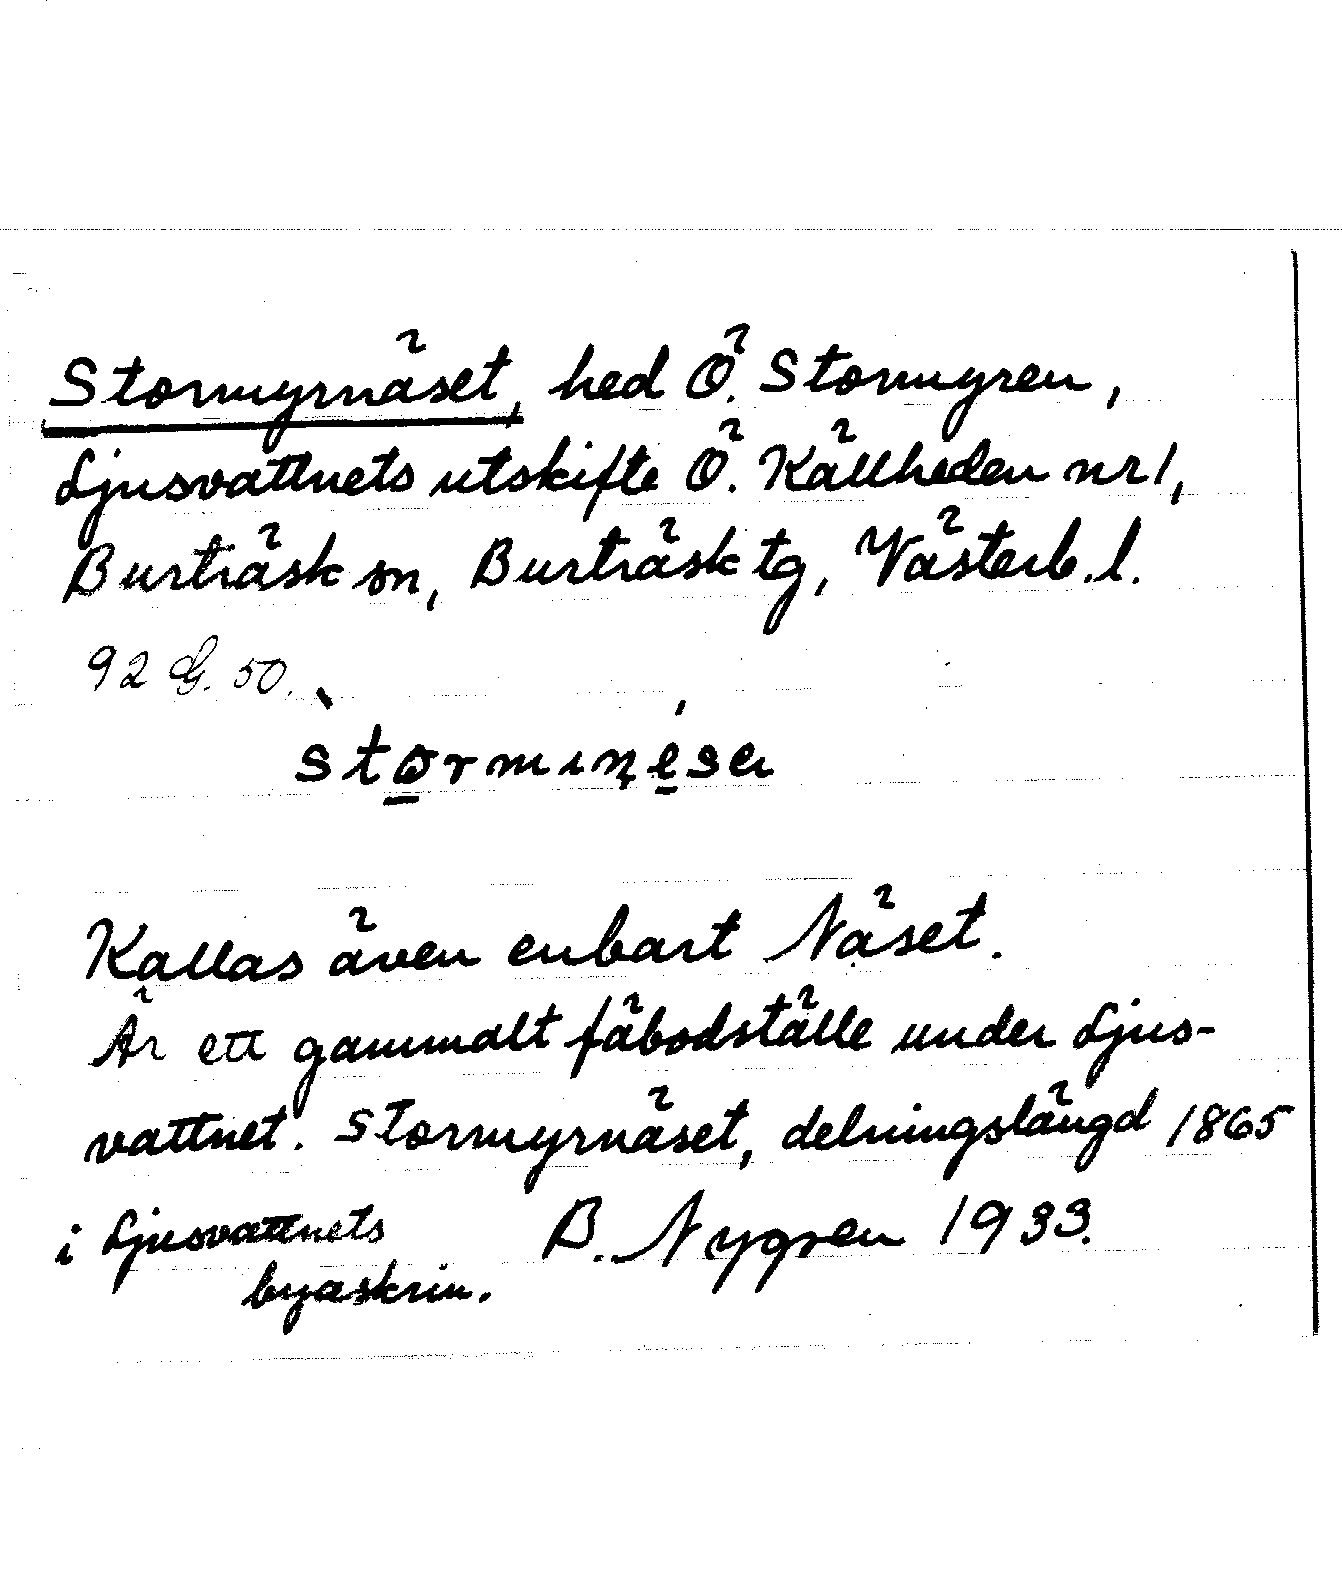 Stormyrnäset, hed Ö. Stormyren,
Ljusvattnets utskifte Ö. Källheden nr 1,
Burträsk sn, Burträsk tg, Västerb. l.
92 G. 50.
Kallas även enbart Näset.
Är ett gammalt fäbodställe under Ljus-
vattnet. Stormyrnäset, delningslängd 1865
i Ljusvattnets B. Nygren 1933.
byaskrin.